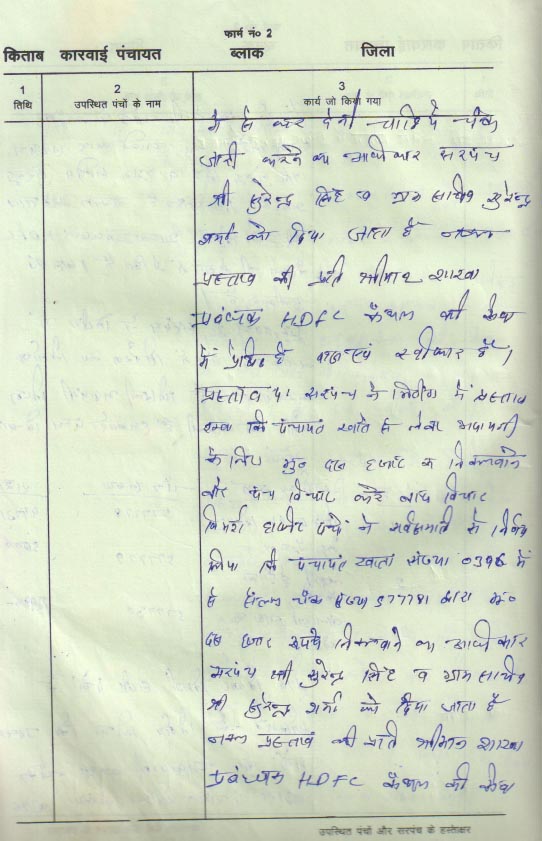 फार्म नं० 2
किताब कारवाई पंचायत ब्लाक जिला
1 2 3
तिथि उपस्थित पंचों के नाम कार्य जो किया गया
में से कर देनी चाहिये चैक
जारी करने का अधिकार सरपंच
श्री सुरेन्द्र सिंह व ग्राम सचिव सुरेन्द्र
शर्मा को दिया जाता है नकल
प्रस्ताव की प्रति श्रीमान शाखा
प्रबंधक HDFC कैथल की सेवा
में प्रेषित है स्वीकार है।
प्रस्ताव सरपंच ने मिटींग में प्रस्ताव
रखा कि पंचायत खाते से लेबर अदायगी
के लिए मु० दस हजार रू निकलवाने
और पंच विचार करें बाद विचार
विमर्श हाजिर पंचों ने सर्वसम्मति से निर्णय
लिया कि पंचायत खाता संख्या 0396 में
से चैक संख्या 577781 द्वारा मु०
दस हजार रूपये निकलवाने का अधिकार
सरपंच श्री सुरेन्द्र सिंह व ग्राम सचिव
श्री सुरेन्द्र शर्मा को दिया जाता है
नकल प्रस्ताव की प्रति श्रीमान शाखा
प्रबंधक HDFC कैथल की सेवा
उपस्थित पंचों और सरपंच के हस्ताक्षर